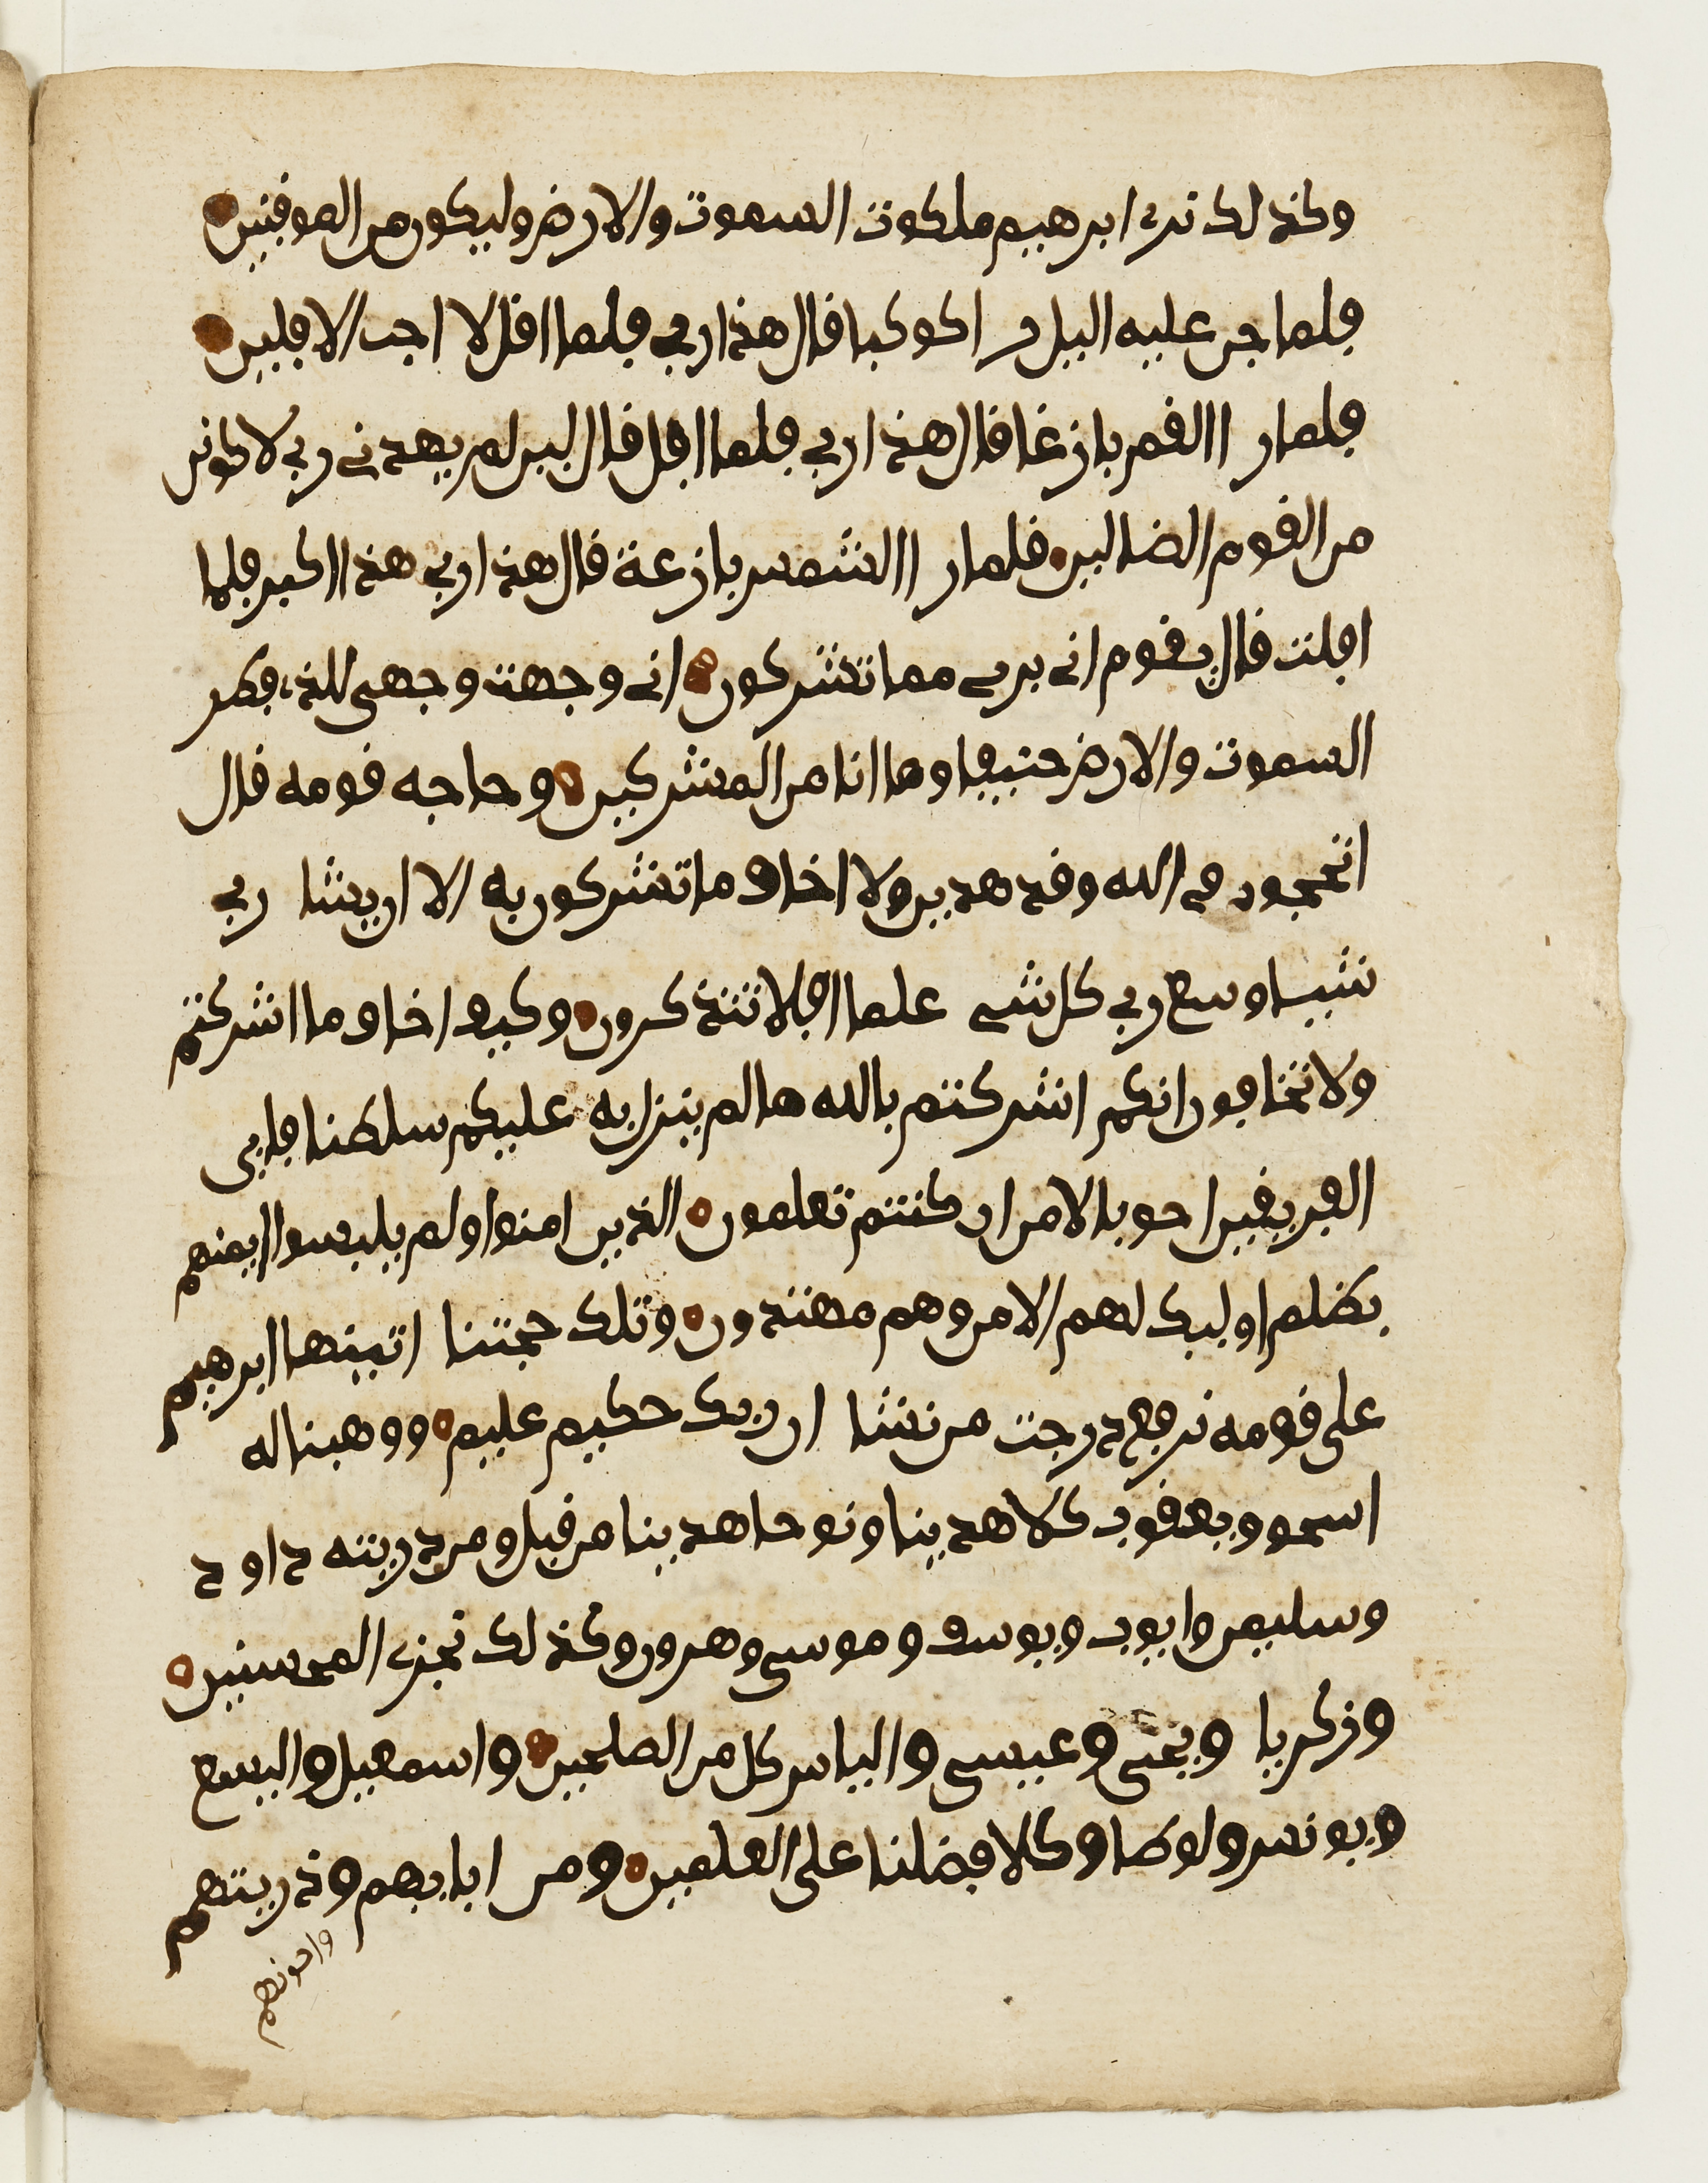 وكذلك نرى ابرهيم ملكوت السموت والارض وليكون من الموقنين
فلما جن عليه اليل را كوكبا قال هذا ربي فلما افل لا احب الافلين
فلما را القمر بازغا قال هذا ربي فلما افل قال لين لم يهدني ربي لاكونن
من القوم الضالين فلما را الشمس بازغة قال هذا ربي هذا اكبر فلما
افلت قال يقوم اني بري مما تشركون اني وجهت وجهي للذي فطر
السموت والارض حنيفا وما انا من المشركين وحاجه قومه قال
اتحجوني في الله وقد هدين ولا اخاف ما تشركون به الا ان يشا ربي
شيا وسع ربي كل شي علما افلا تتذكرون وكيف اخاف ما اشركتم
ولا تخافون انكم اشركتم بالله ما لم ينزل به عليكم سلطنا فاي
الفريقين احق بالامن ان كنتم تعلمون الذين امنوا ولم يلبسوا ايمنهم
بظلم اوليك لهم الامن وهم مهتدون وتلك حجتنا اتينها ابرهيم
على قومه نرفع درجت من نشا ان ربك حكيم عليم ووهبنا له
اسحق ويعقوب كلا هدينا ونوحا هدينا من قبل ومن دريته داود
وسليمن وايوب ويوسف وموسى وهرون وكذلك نجزي المحسنين
وزكريا ويحيى وعيسى والياس كل من الصلحين واسمعيل واليسع
ويونس ولوطا وكلا فضلنا على العلمين ومن ابايهم وذريتهم
واخونهم